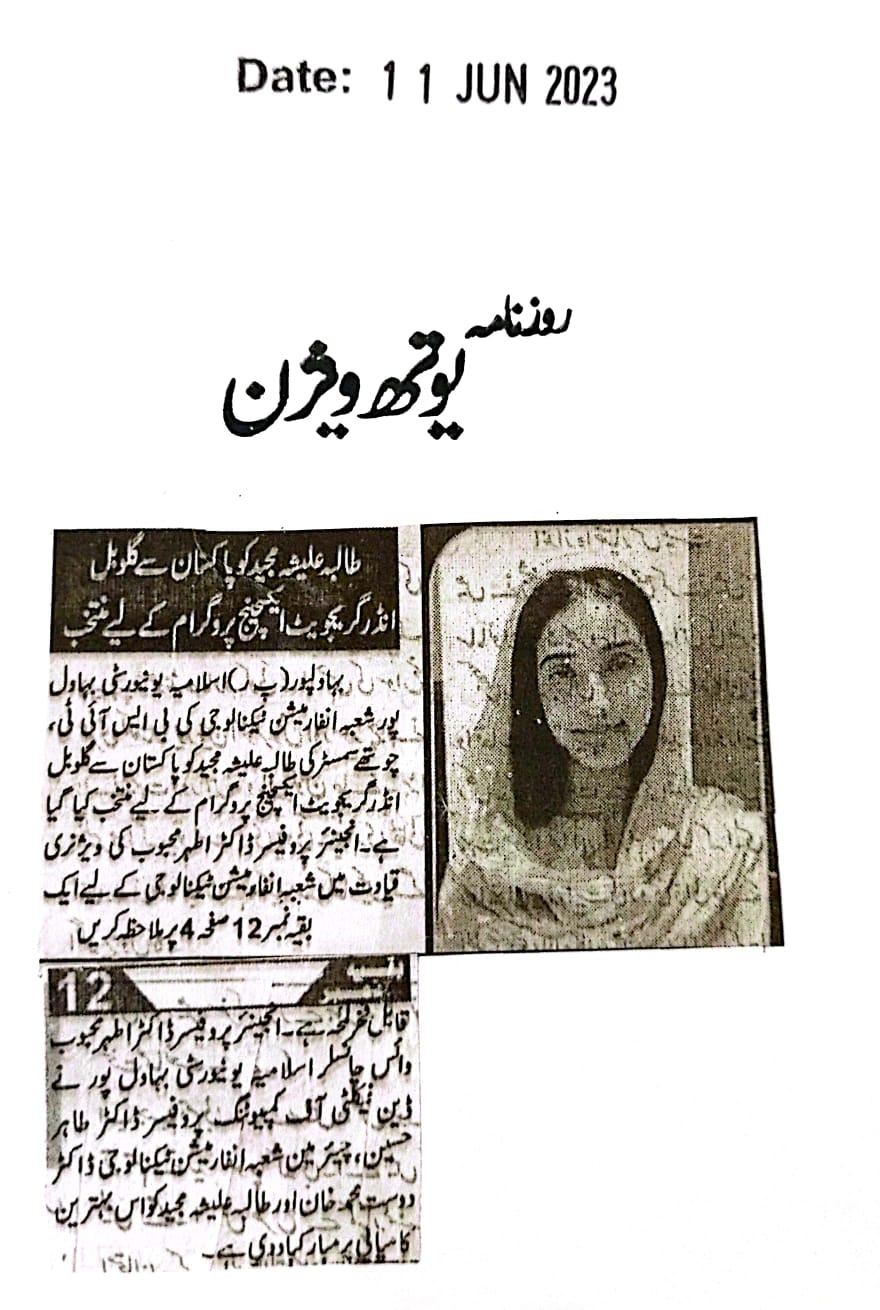 Date: 11 JUN 2023
روزنامہ
یوتھ ویژن
طالبہ علیشہ مجید کو پاکستان سے گلوبل
انڈرگریجویٹ ایکسچینج پروگرام کے لیے منتخب
بہاولپور(پ ر)اسلامیہ یونیورسٹی بہاول
پور شعبہ انفارمیشن ٹیکنالوجی کی بی ایس آئی ٹی،
چوتھے سمسٹر کی طالبہ علیشہ مجید کو پاکستان سے گلوبل
انڈرگریجویٹ ایکسچینج پروگرام کے لیے منتخب کیا گیا
ہے۔انجینئر پروفیسر ڈاکٹر اطہر محبوب کی ویژنری
قیادت میں شعبہ انفارمیشن ٹیکنالوجی کے لیے ایک
بقیہ نمبر 12 صفحہ 4 پر ملاحظہ کریں
بقیہ
12
قابل فخر لمحہ ہے۔انجینئر پروفیسر ڈاکٹر اطہر محبوب
وائس چانسلر اسلامیہ یونیورسٹی بہاول پور نے
ڈین فیکلٹی آف کمپیوٹنگ پروفیسر ڈاکٹر طاہر
حسین، چیئرمین شعبہ انفارمیشن ٹیکنالوجی ڈاکٹر
دوست محمد خان اور طالبہ علیشہ مجید کو اس بہترین
کامیابی پر مبارکباد دی ہے۔